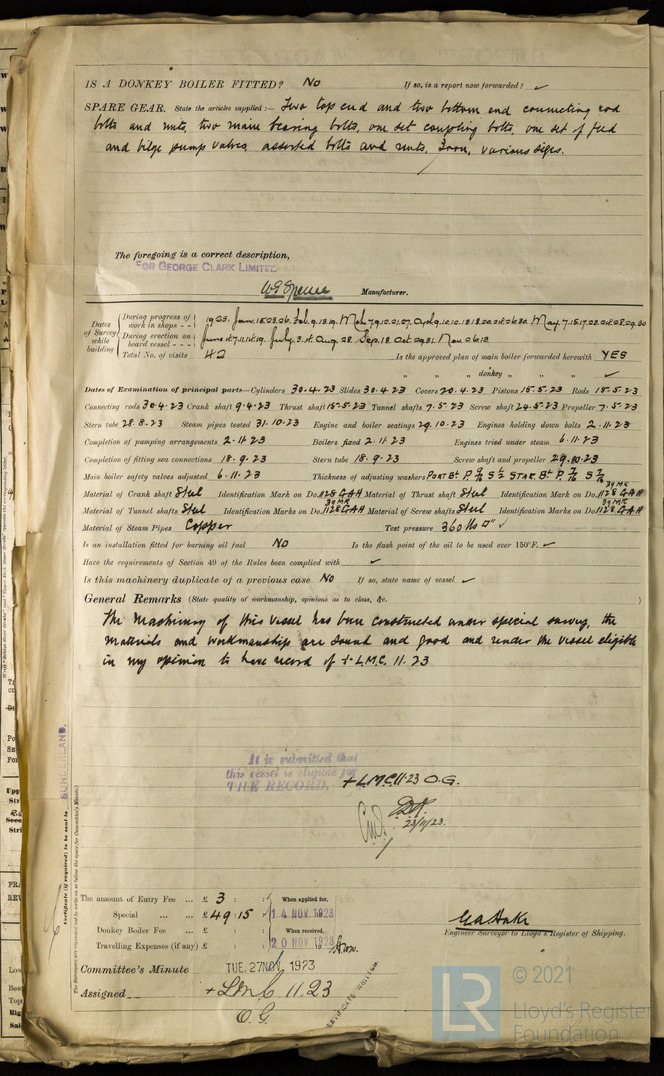 IS A DONKEY BOILER FITTED? No If so, is a report now forwarded? ✓
SPARE GEAR. State the articles supplied:— Two top end and two bottom end connecting rod
bolts and nuts, two main bearing bolts, one set coupling bolts, one set of feed
and bilge pump valves, assorted bolts and nuts, Iron, various sizes.
The foregoing is a correct description,
FOR GEORGE CLARK LIMITED.
W E Spence Manufacturer.
Dates of Survey while building
During progress of work in shops - - 1923. Jan. 15.23.26. Feb. 9.13.19. Mch. 7.9. Apl. 9.10. 18. 26.30. May. 7.15.17.
During erection on board vessel - - - June July. 3. Aug. 28. Sep. 18. Oct. 29.31. Nov. 2.6.13
Total No. of visits 42 Is the approved plan of main boiler forwarded herewith YES
" " " donkey " " " ✓
Dates of Examination of principal parts—Cylinders 30.4.23 Slides 30.4.23 Covers 20.4.23 Pistons 15.5.23 Rods 15.5.23
Connecting rods 30.4.23 Crank shaft 9.4.23 Thrust shaft 15.5.23 Tunnel shafts 7.5.23 Screw shaft 24.5.23 Propeller 7.5.23
Stern tube 28.3.23 Steam pipes tested 31.10.23 Engine and boiler seatings 29.10.23 Engines holding down bolts 2.11.23
Completion of pumping arrangements 2.11.23 Boilers fixed 2.11.23 Engines tried under steam 6.11.23
Completion of fitting sea connections 18.9.23 Stern tube 18.9.23 Screw shaft and propeller 29.10.23
Main boiler safety valves adjusted 6.11.23 Thickness of adjusting washers PORT Br P. S STAR. Br P. S
Material of Crank shaft Steel Identification Mark on Do. 1128 GAH Material of Thrust shaft Steel Identification Mark on Do. 1128 GAH
Material of Tunnel shafts Steel Identification Marks on Do. 1128 GAH Material of Screw shafts Steel Identification Marks on Do. 1128 GAH
Material of Steam Pipes Copper Test pressure 360 lbs □" ✓
Is an installation fitted for burning oil fuel NO Is the flash point of the oil to be used over 150°F. ✓
Have the requirements of Section 49 of the Rules been complied with ✓
Is this machinery duplicate of a previous case NO If so, state name of vessel ✓
General Remarks (State quality of workmanship, opinions as to class, &c. )
The Machinery of this vessel has been constructed under special survey, the
materials and workmanship are sound and good and render the vessel eligible
in my opinion to have record of + L.M.C. 11.23
SUNDERLAND.
Certificate (if required) to be sent to
(The Surveyors are requested not to write on or below the space for Committee's Minute.)
It is submitted that
this vessel is eligible for
THE RECORD. + L.M.C. 11.23 O.G.
23/11/23.
The amount of Entry Fee ... £ 3 : : When applied for,
Special ... ... £ 49.15 : 14 NOV 1923
Donkey Boiler Fee ... £ : : When received,
Travelling Expenses (if any) £ : : 20 NOV 1923
G A Hake
Engineer Surveyor to Lloyd's Register of Shipping.
Committee's Minute TUE. 27 NOV 1923
Assigned + LMC 11.23
O.G.
CERTIFICATE WRITTEN
LR © 2021
Lloyd's Register
Foundation